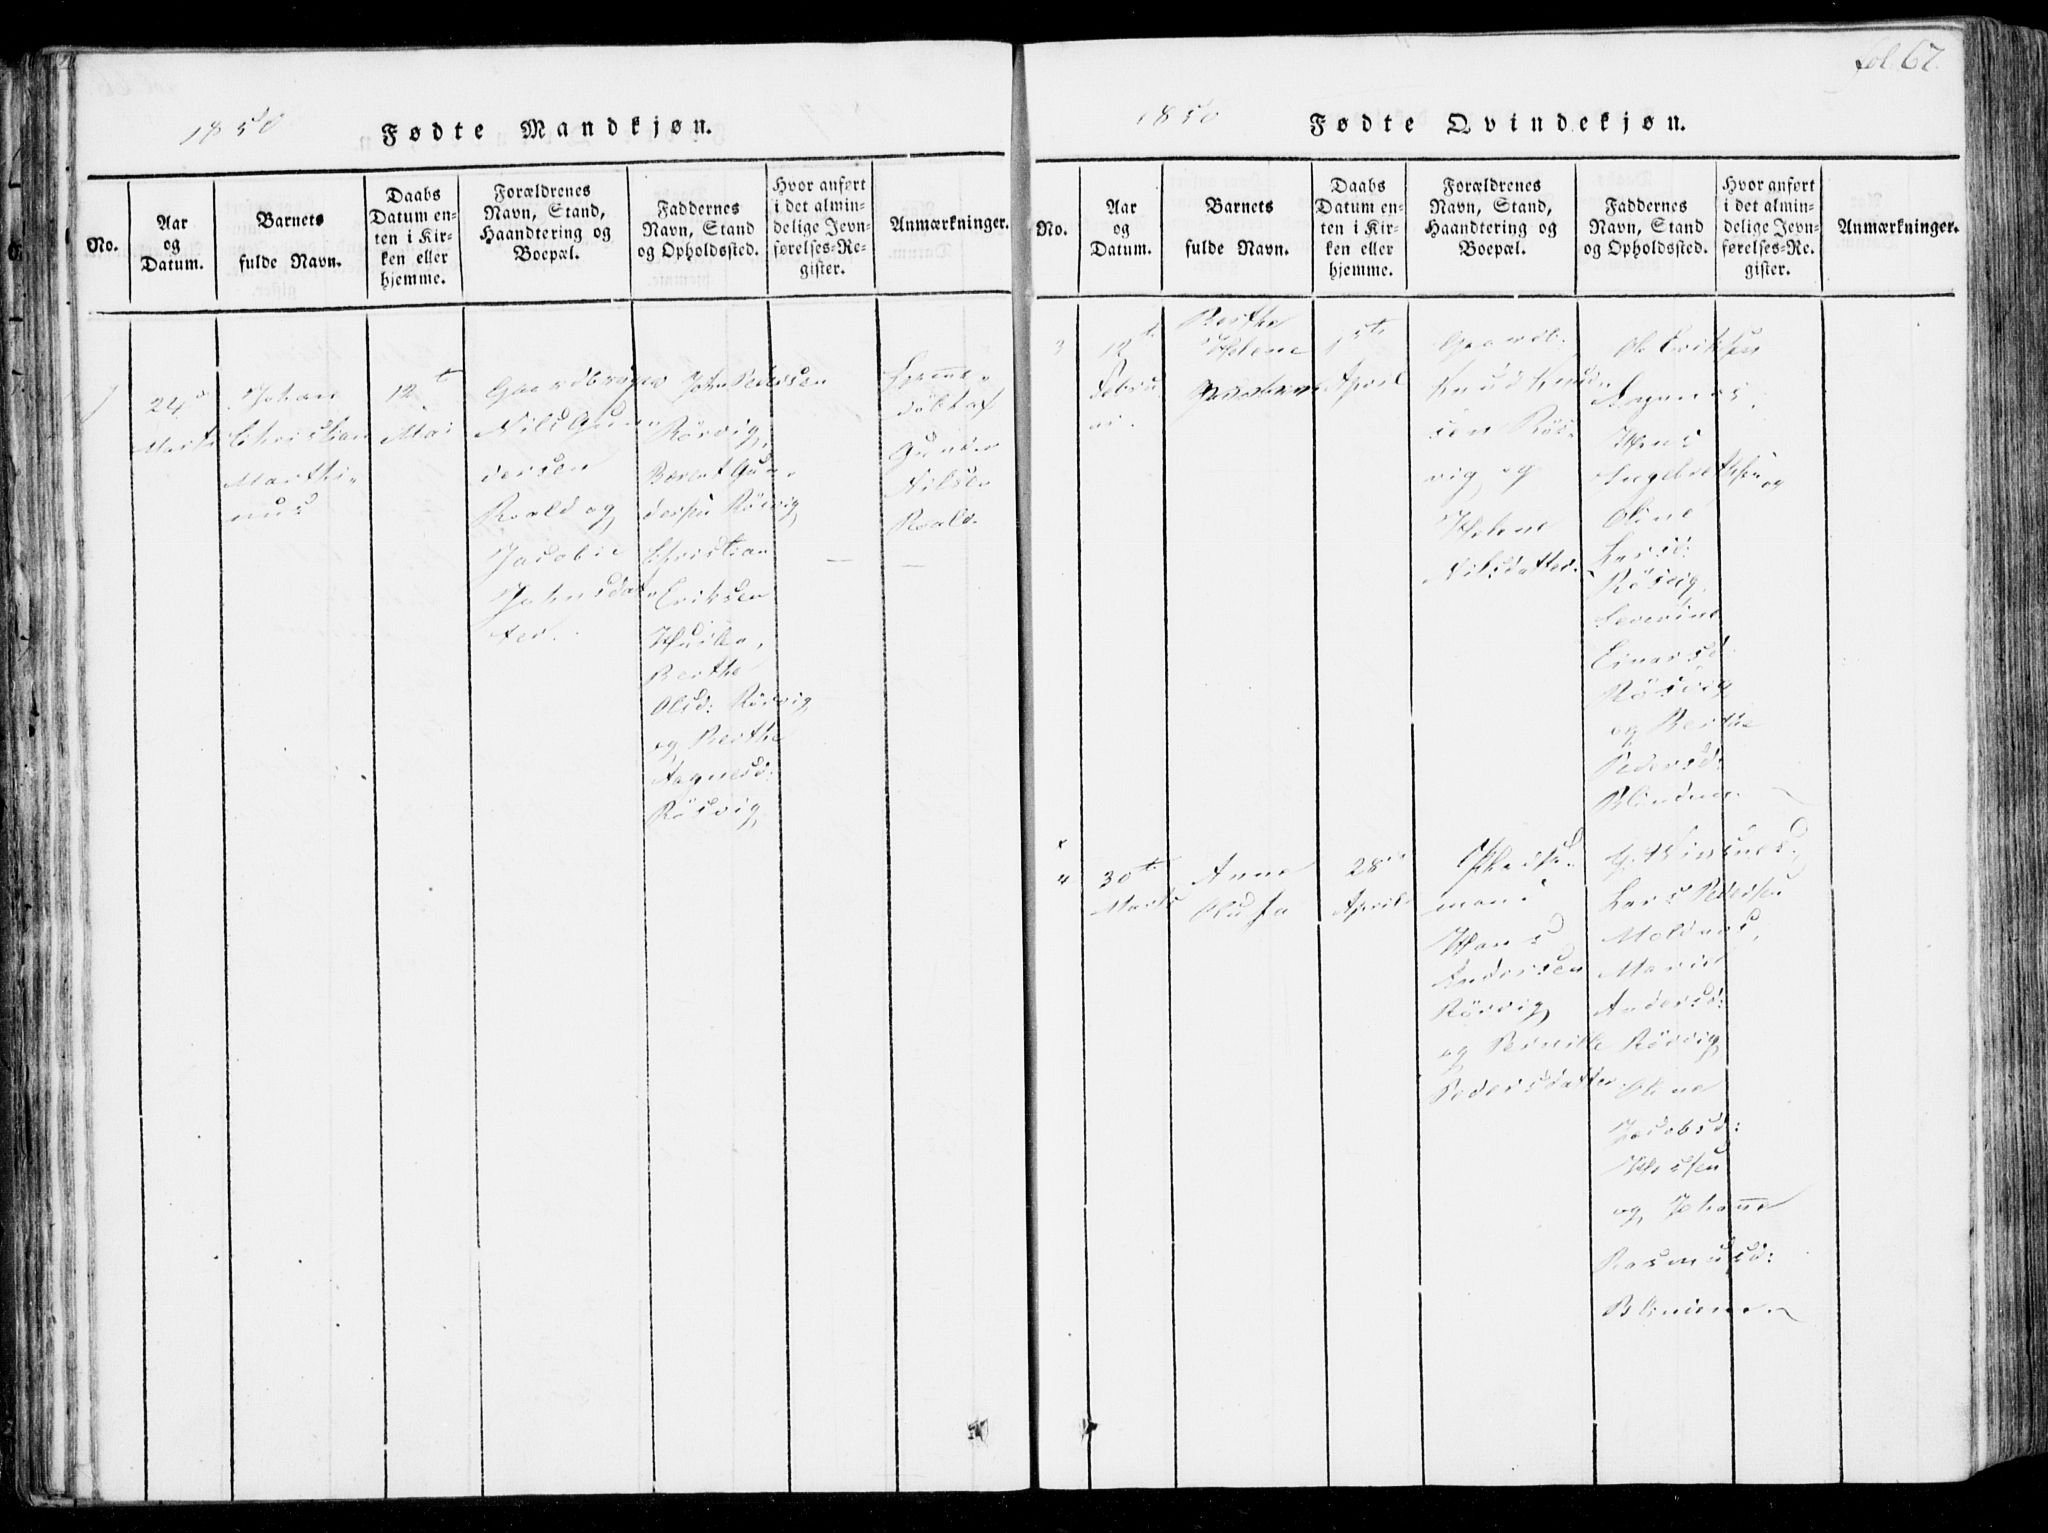 fol. 67.
1850
Fødte Mandkjøn.
No.
Aar
og
Datum.
Barnets
fulde Navn.
Daabs
Datum en-
ten i Kir-
ken eller
hjemme.
Forældrenes
Navn, Stand,
Haandtering og
Boepæl.
Faddernes
Navn, Stand
og Opholdssted.
Hvor anført
i det almin-
delige Jevn-
førelses-Re-
gister.
Anmærkninger.
24
Marts
Johan
Christian
Marthi-
nus
12t
Mai
Gaardbruger
Nils Gun-
dersen
Roald og
Jacobie
Johnsdat-
ter.
John Pedersen
Rörvig,
Berent Gun-
dersen Rörvig
Christian
Eriksen
Berthe
Olsd: Rörvig
og Berthe
Aagnesd:
Rösvig
döbt af
Gunder
Nilsen
Roald.
1850
Fødte Qvindekjøn.
No.
Aar
og
Datum.
Barnets
fulde Navn.
Daabs
Datum en-
ten i Kir-
ken eller
hjemme.
Forældrenes
Navn, Stand,
Haandtering og
Boepæl.
Faddernes
Navn, Stand
og Opholdssted.
Hvor anført
i det almin-
delige Jevn-
førelses-Re-
gister.
Anmærkninger.
3
12te
Febru
ai.
Berthe
Helene
1ste
April
Gaardb.
Knud Knud
sen Rös-
vig og
Helene
Nilsdatter.
Ole Eriksen
Hans
Ingebretsen og
Oline
Larsd:
Rösvig,
Severine
Einarsd:
Rösvig
og Berthe
Pedersd:
Blindem
x
4
30t
Marts
Anne
Olufa
28de
April
mand
Hans
Andersen
Rörvig
og Pernille
Pedersdatter
Lars Pedersen
Moldnæs,
Marie
Andersd:
Rörvig
Oline
Jacobsd:
Hessen
og Johanne
Rasmusd:
Blindem